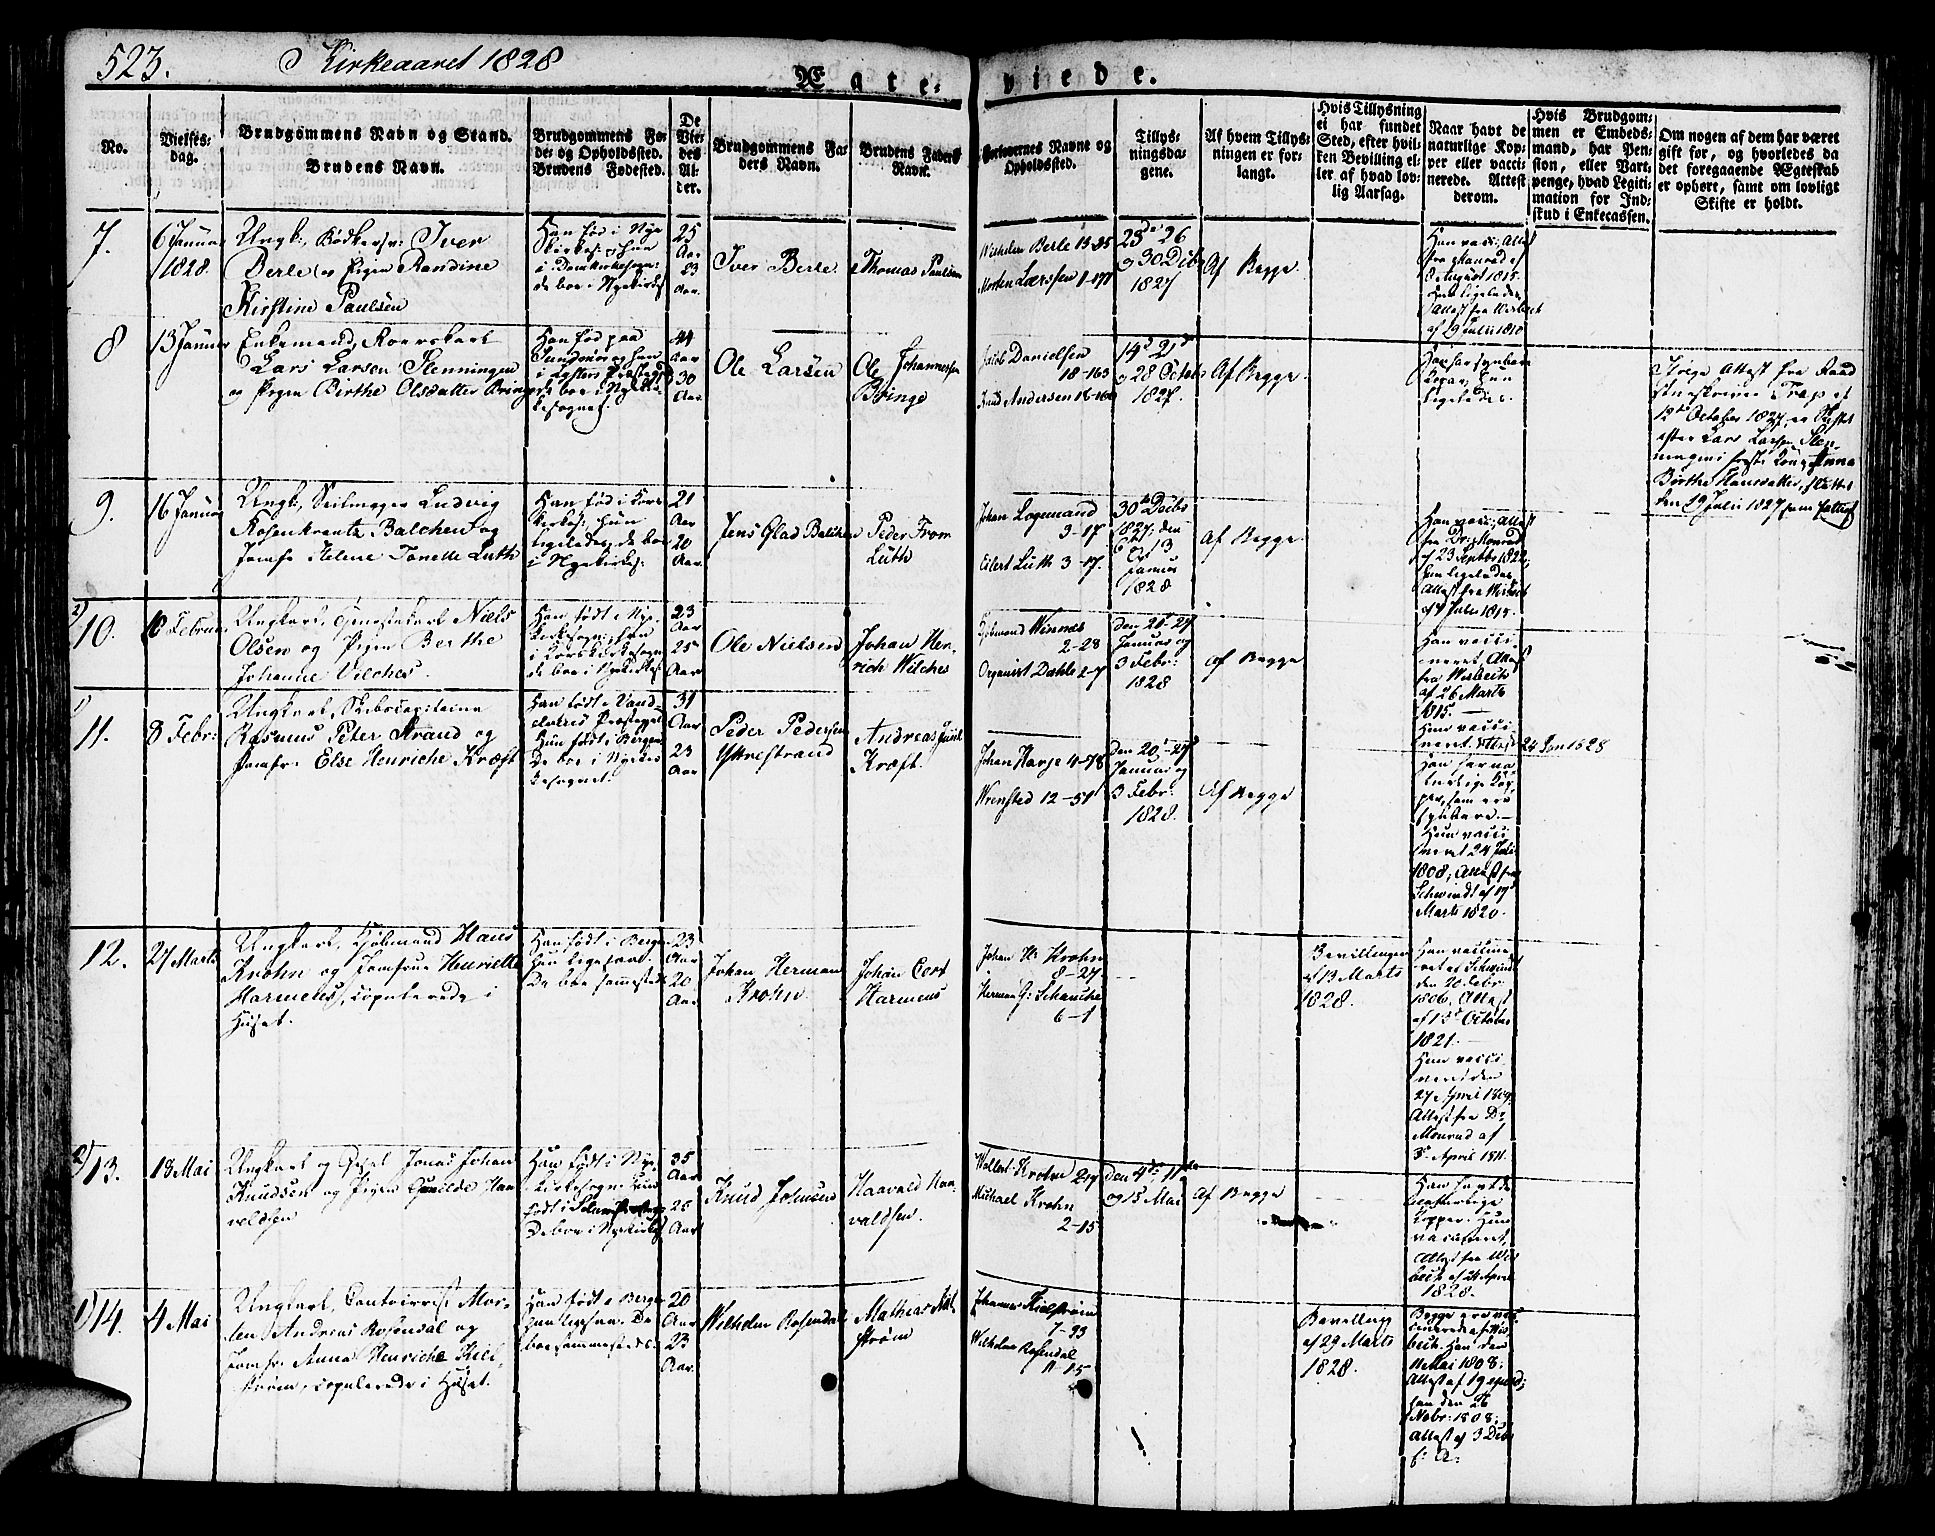 523. Kirkeaaret 1828
Ægte-
viede.
No.
Vielses-
dag.
Brudgommens Navn og Stand.
Brudens Navn.
Brudgommens Fø-
de- og Opholdssted.
Brudens Fødested.
De
Vie-
des
Al-
der.
Brudgommens Fa-
ders Navn.
Brudens Faders
Navn.
Forlovernes Navne og
Opholdssted.
Tillys-
ningsda-
gene.
Af hvem Tillys-
ningen er for-
langt.
Hvis Tillysning
ei har fundet
Sted, efter hvil-
ken Bevilling el-
ler af hvad lov-
lig Aarsag.
Naar havt de
naturlige Kop-
per eller vacci-
nerede. Attest
derom.
Hvis Brudgom-
men er Embeds-
mand, har Pen-
sion, eller Vart-
penge, hvad Legiti-
mation for Ind-
skud i Enkecassen.
Om nogen af dem har været
gift før, og hvorledes da
det foregaaende Ægteskab
er ophørt, samt om lovligt
Skifte er holdt.
7.
6 Januar
1828.
Ungk: Bødkersv: Iver
Berle og Pigen Randine
Kirstine Paulsen
Han fød i Nye
Kirkes: hun
i Domkirkesogn:
de boe i Nyekirkes
25
Aar
23
Aar.
Iver Berle
Thomas Paulsen
Wilhelm Berle 15-35
Morten Larssen 1-177
23de 26
og 30 Dcbr
1827
Af Begge.
Han vacc: Attest
fra Monrad af
8 August 1815.
Hun ligeledes
Attest fra Wisbech
af 29 Julii 1810
8
13 Januar
Enkemand, Roerskarl
Lars Larsen Slenningen
og Pigen Birthe Olsdatter Bringe
Han fød paa
Sundmør og hun
i Lysters Præstegd
de boe i Nykir-
kesognet.
44
Aar
30
Aar
Ole Larsen
Ole Johannessen
Bringe
Jacob Danielsen
18-163
Knud Andersen 18-160
14d 21d
og 28 Octobr
1827.
Af Begge.
Han har synbare
Kopar, hun
ligeledes.
Ifølge Attest fra Raad
stueskriver Trap af
12te October 1827, er Skiftet
efter Lars Larsen Slen-
ningens første Kone Anna
Børthe Hansdatter, sluttet
den 19 Julii 1827
9.
16 Januar
Ungk: Seilmager Ludvig
Rosenkrantz Balchen og
Jomfr Helene Tonette Lüth
Han fød i Kors
kirkes: hun
ligeledes, de boe
i Nyekirkes:
21
Aar
20
Aar.
Jens Glad Balchen
Peder From
Lüth
Johan Logemand
3-17.
Eilert Lüth 3-17.
30te Dcbr
1827; den
6 og 13
Januar
1828
af Begge.
Han vacc: Attest
fra Dr: Monrad
af 23 Septbr 1822,
hun ligeledes
Attest fra Wisbech
af 7 Julii 1815.
2)
10.
10 Februar
Ungkarl, Tjenestekarl Niels
Olsen og Pigen Berthe
Johanne Vilches.
Han født i Nye-
kirkesogn, hun
i Korskirkesogn
de boe i Nyekirkes
23
Aar
25
Aar
Ole Nielsen
Johan Hen-
rich Wilches
Kjøbmand Winnes
2-28
Organist Dahle 2-7
den 20- 27
Januar og
3 Febr:
1828
af Begge
Han vacci-
neret, Attest
fra Wisbech
af 26 Marts
1815. —
Hun vacci
neret Attest 24 Jan 1828
1)
11.
8 Febr:
Ungkarl, Skibscapitaine
Rasmus Peter Strand og
Jomfr: Else Henriche Kræft
Han født i Vand-
elvens Præstegd
Hun født i Bergen
De boe i Nyekir-
kesognet.
31
Aar
23
Aar
Peder Pedersen
Ytrestrand
Andreas Juul
Kræft.
Johan Harje 10-78
Wrensted 12-51
den 20- 27
Januar og
3 Febr:
1828.
Af Begge
Han har na-
turlige Kop-
per, som ere
synbare. —
Hun vacci
neret 24 Juli
1808, Attest fra
Schwindt af 17d
Marts 1820.
12.
27 Marts
Ungkarl, Kjøbmand Hans
Krohn og Jomfrue Henriette
Harmens, copulerede i
Huset.
Han født i Bergen
hun ligesaa.
De boe sammesteds
23
Aar
20
Aar
Johan Herman
Krohn
Johan Cort
Harmens
Johan H. Krohn
8-27
Herman G: Schanche
6-1
Bevillingen
af 13 Marts
1828.
Han vaccine-
ret af Schwindt
den 20 Febr.
1806, Attest
af 15d October
1821. —
Hun vacci
neret den
27 April 1809,
Attest fra Dr
Monrad af
3d April 1811.
2)
13.
18 Mai
Ungkarl og Johan
Knudsen og Pigen Gunilde Haa
valdsen
Han født i Nye-
kirkesogn, hun
født i
De boe i Nyekirkes
35
Aar
26
Aar
Knud Johnsen
Haavald Haa-
valdsen.
Wollert Krohn 2-17
Michael Krohn
2-15
den 4de 11te
og 15 Mai
af Begge
Han havde
naturlige
Kopper. Hun
vaccineret,
Attest fra Wis
bech af 21 April
1828.
1)
14.
4 Mai
Ungkarl, Contoirist Mor-
ten Andreas Rosendal og
Jomfr: Anna Henriche Kiel-
strøm, copulerede i Huset.
Han født i Bergen
hun ligesaa. De
boe sammesteds.
20
Aar
23
Aar.
Wilhelm Rosendal
Mathias Kiel-
strøm
Johannes Kielstrøm
7-93
Wilhelm Rosendal
11-15
Bevilling
af 29 Marts
1828.
Begge ere vac-
cinerede af Wis-
bech. Han den
11 Mai 1808;
Attest af 19
hun den 26
Novbr: 1808;
Attest af 3 Dcbr
s: A: